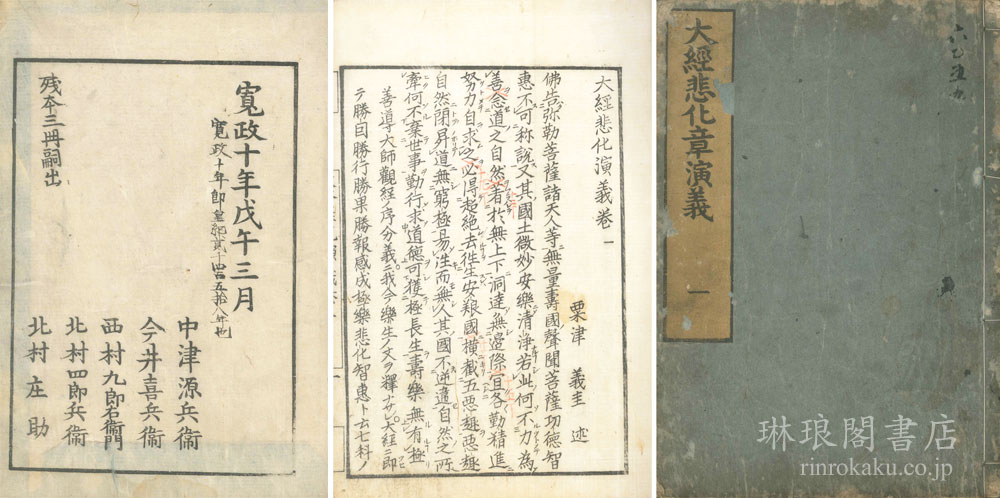 大經悲化章演義 一
大經悲化演義卷一
栗津 義圭 述
佛告弥勒菩薩諸天人等無量壽國聲聞菩薩功德智
惠不可称説又其國土微妙安樂清浄若此何不力為
善念道之自然著於無上下洞達無邊際宜各勤精進
努力自求之必得超絶去徃生安 國横截五悪趣悪趣
自然閉昇道無窮極易徃而無人其國不逆違自然之所
牽何不棄世事勤行求道德可獲極長生壽樂無有極
善導大師觀経ノ序分義ニ我今樂生ノ文ヲ釋 大経ニ即
テ勝因勝行勝果勝報感成極樂悲化智惠ト云七科ノ
寛政十年戊午三月
寛政十年即皇紀貳千四百五拾八年也
残本三冊嗣出
中津源兵衞
今井喜兵衞
西村九郎右衞門
北村四郎兵衞
北村庄助
琳琅閣書店
rinrokaku.co.jp